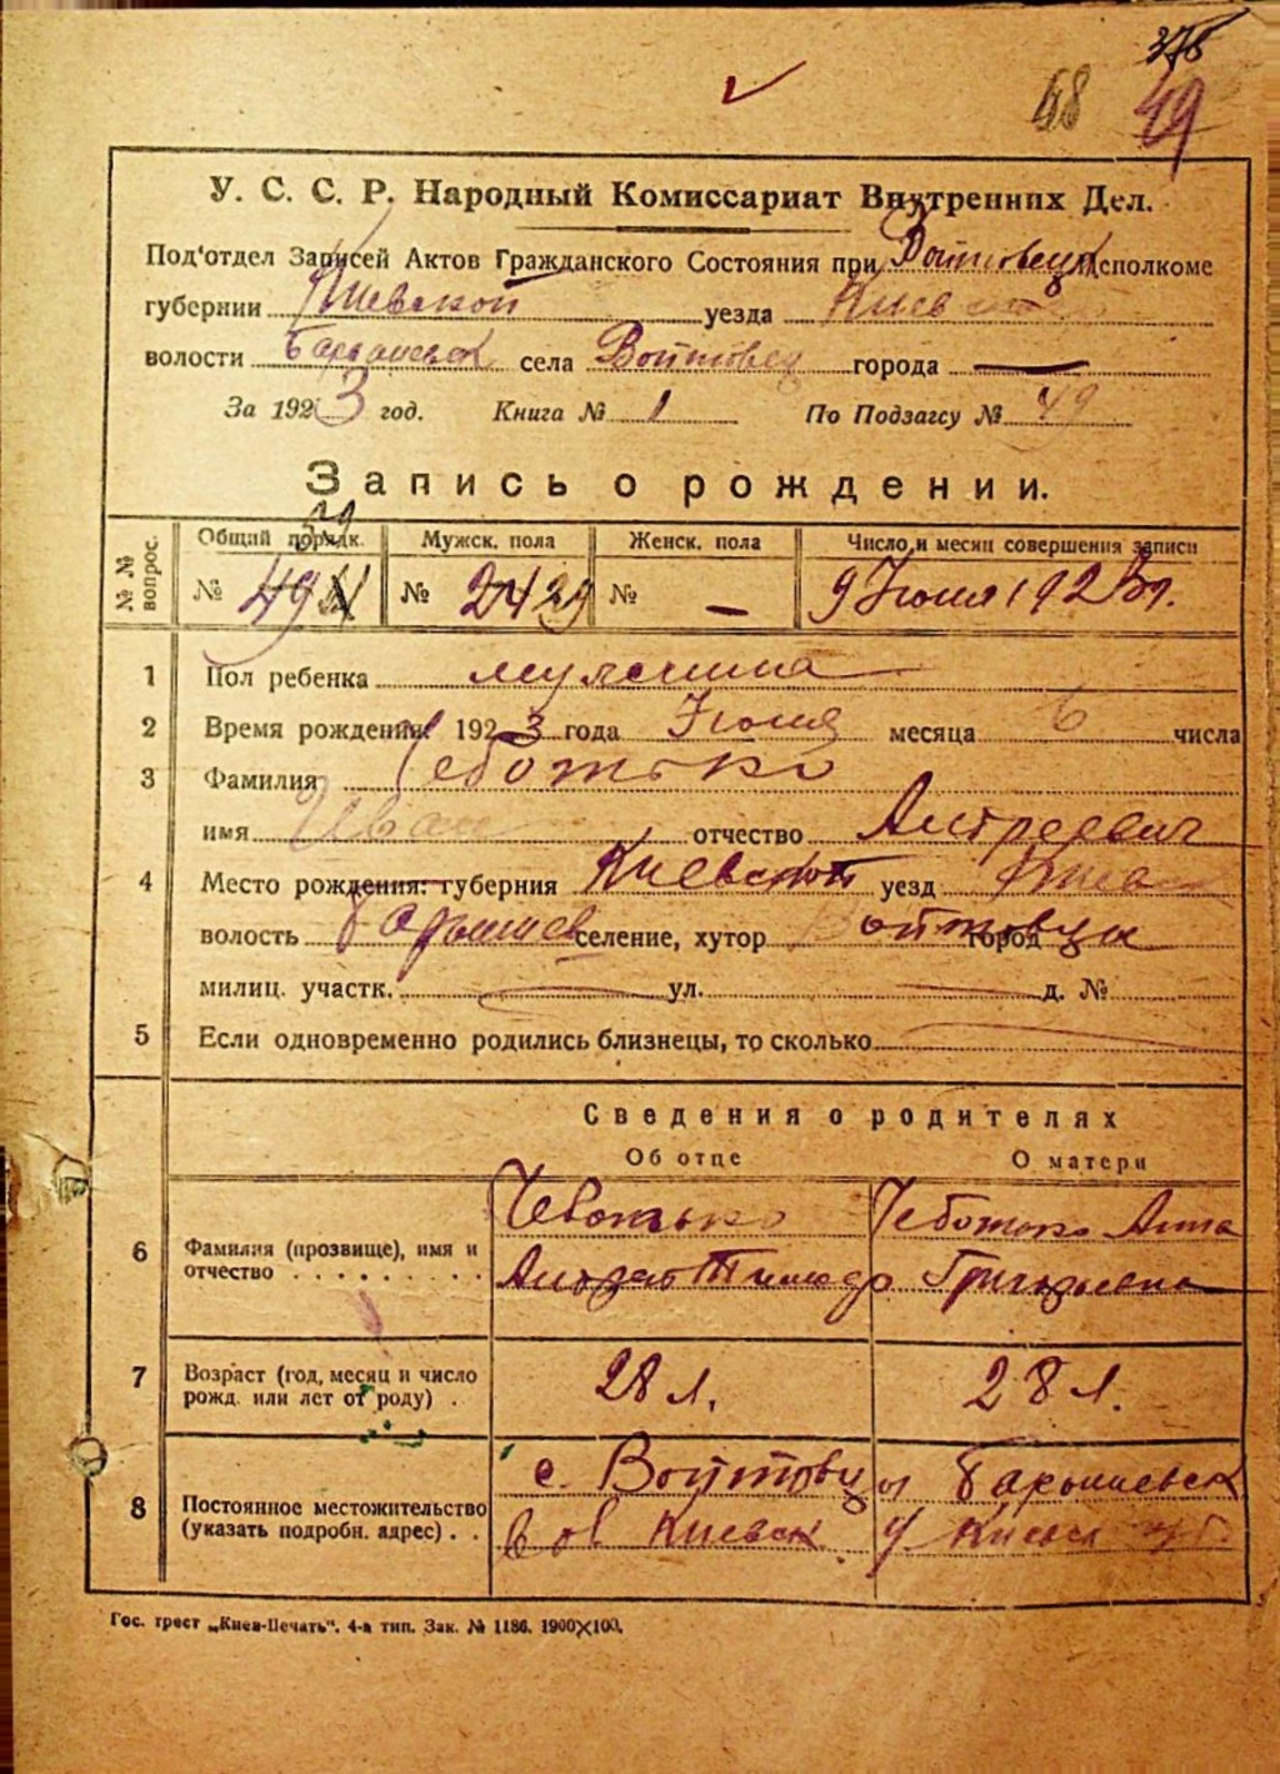 48 49
У. С. С. Р. Народный Комиссариат Внутренних Дел.
Под‘отдел Записей Актов Гражданского Состояния при Войтовецк Исполкоме
губернии Киевской уезда Киев
волости Барышевск села Войтовец города —
За 1923 год. Книга № 1 По Подзагсу № 49
Запись о рождении.
№ № вопрос. Общий порядк. Мужск. пола Женск. пола Число и месяц совершения записи
№ 49 № 24 29 № — 9 Июня 1923 г.
1 Пол ребенка мужчина
2 Время рождения: 1923 года Июня месяца 6 числа
3 Фамилия Чеботько
имя Иван отчество Андреевич
4 Место рождения: губерния Киевской уезд Киевск
волость Барышев селение, хутор Войтовцы город
милиц. участк. ул. д. №
5 Если одновременно родились близнецы, то сколько
Сведения о родителях
Об отце О матери
6 Фамилия (прозвище), имя и отчество . . . . . . . . .
Чеботько
Андрей Тимофр
Чеботько Анна
Григорьевна
7 Возраст (год, месяц и число рожд. или лет от роду) .
28 л. 28 л.
8 Постоянное местожительство (указать подробн. адрес) . .
с. Войтовцы Барышевск
вол Киевск у Киевск губ.
Гос. трест „Киев-Печать“. 4-я тип. Зак. № 1186. 1900×100.